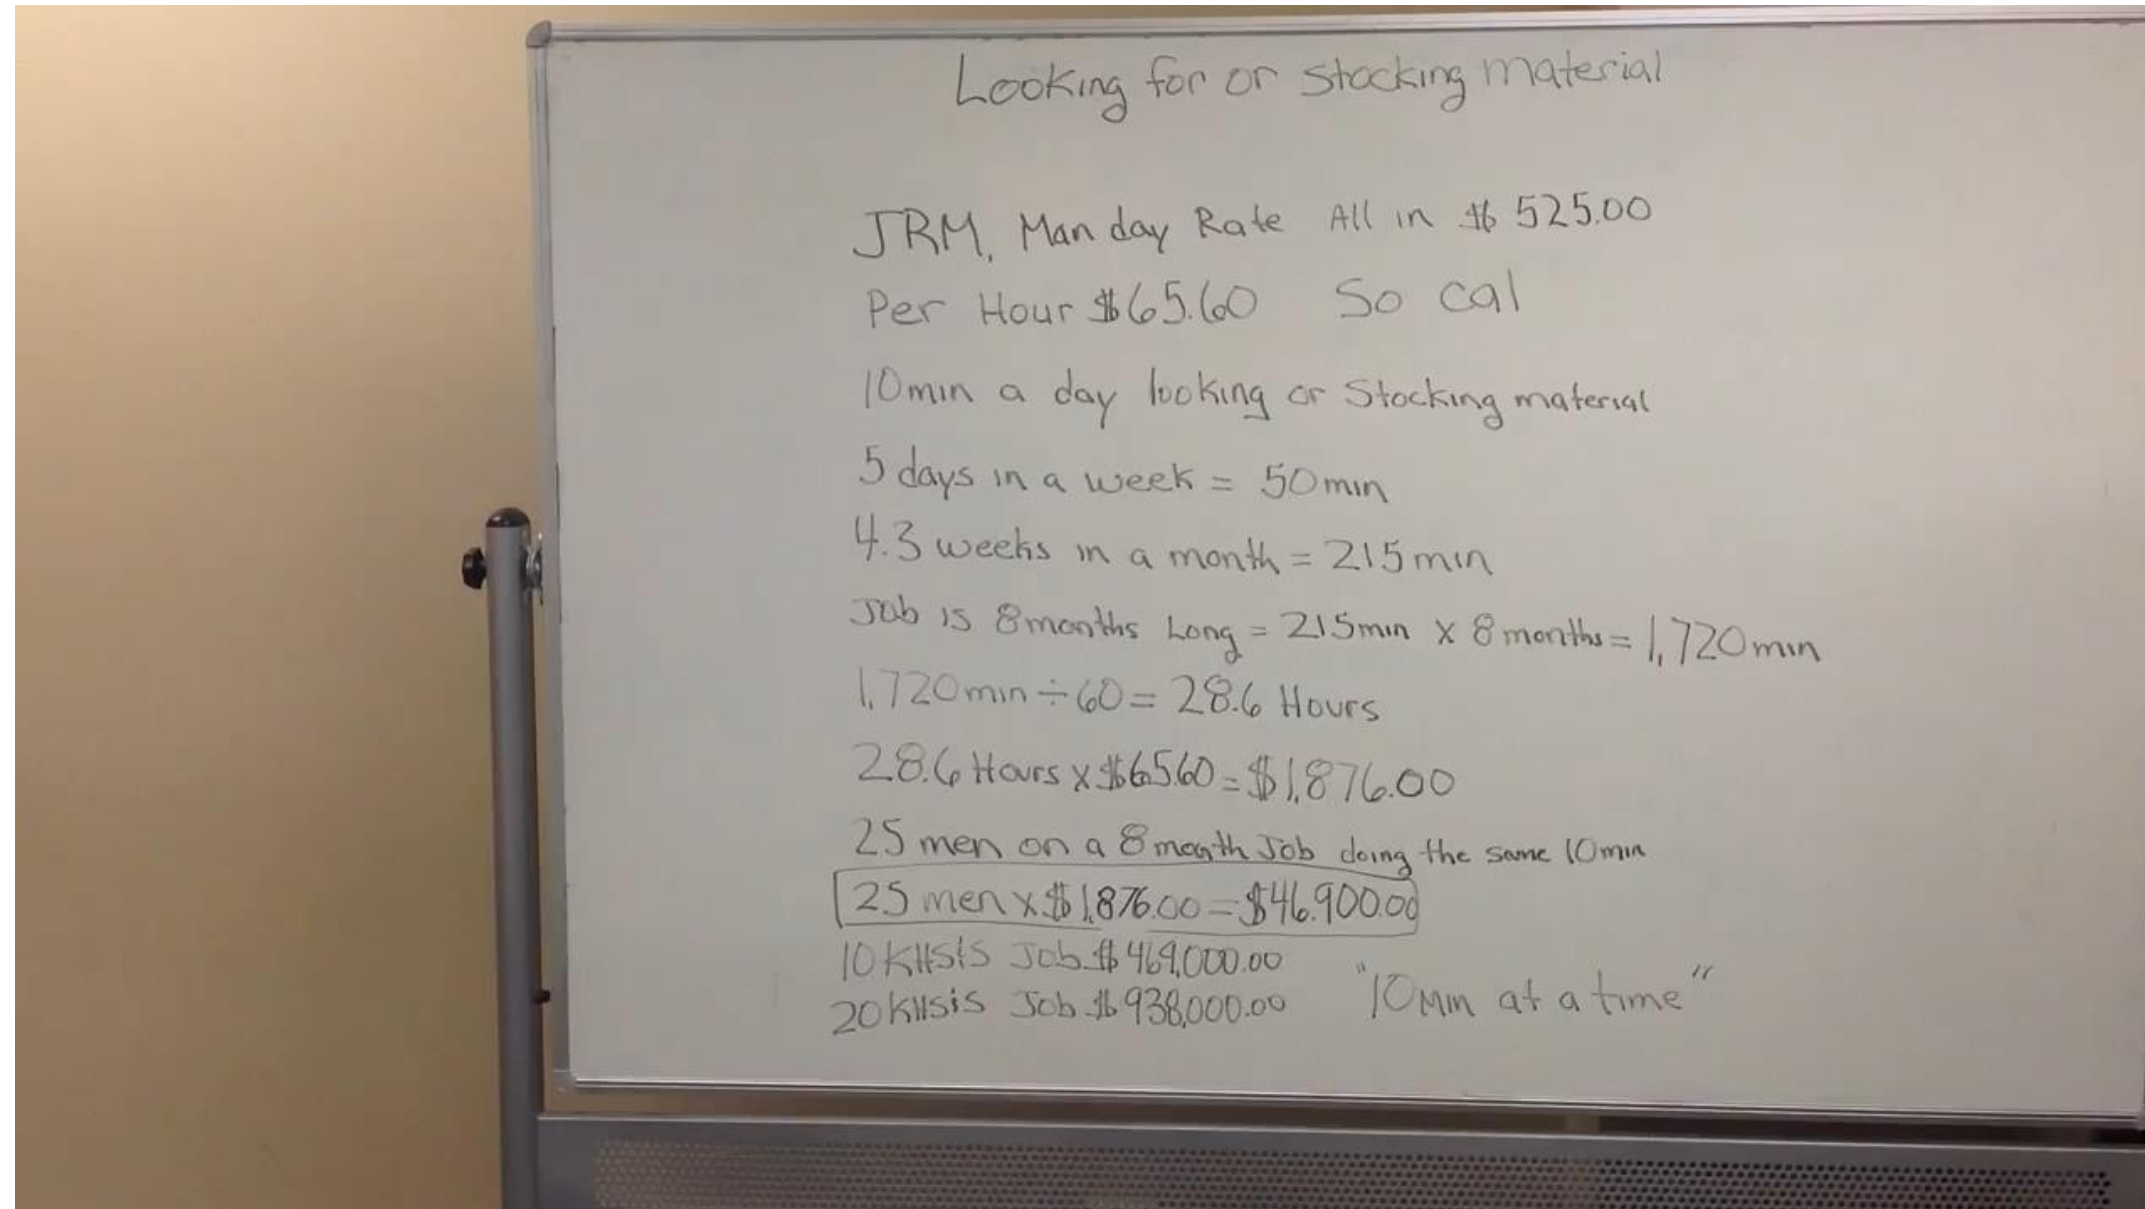 Looking for or Stocking material
JRM, Man day Rate All in $ 525.00
Per Hour $65.60 So cal
10min a day looking or Stocking material
5 days in a week = 50min
4.3 weeks in a month = 215min
Job is 8months Long = 215min x 8months = 1,720min
1,720min ÷ 60 = 28.6 Hours
28.6 Hours x $65.60 = $1,876.00
25 men on a 8month Job doing the same 10min
25 men x $1,876.00 = $46,900.00
10 Job $469,000.00
20 Job $938,000.00
"10min at a time"